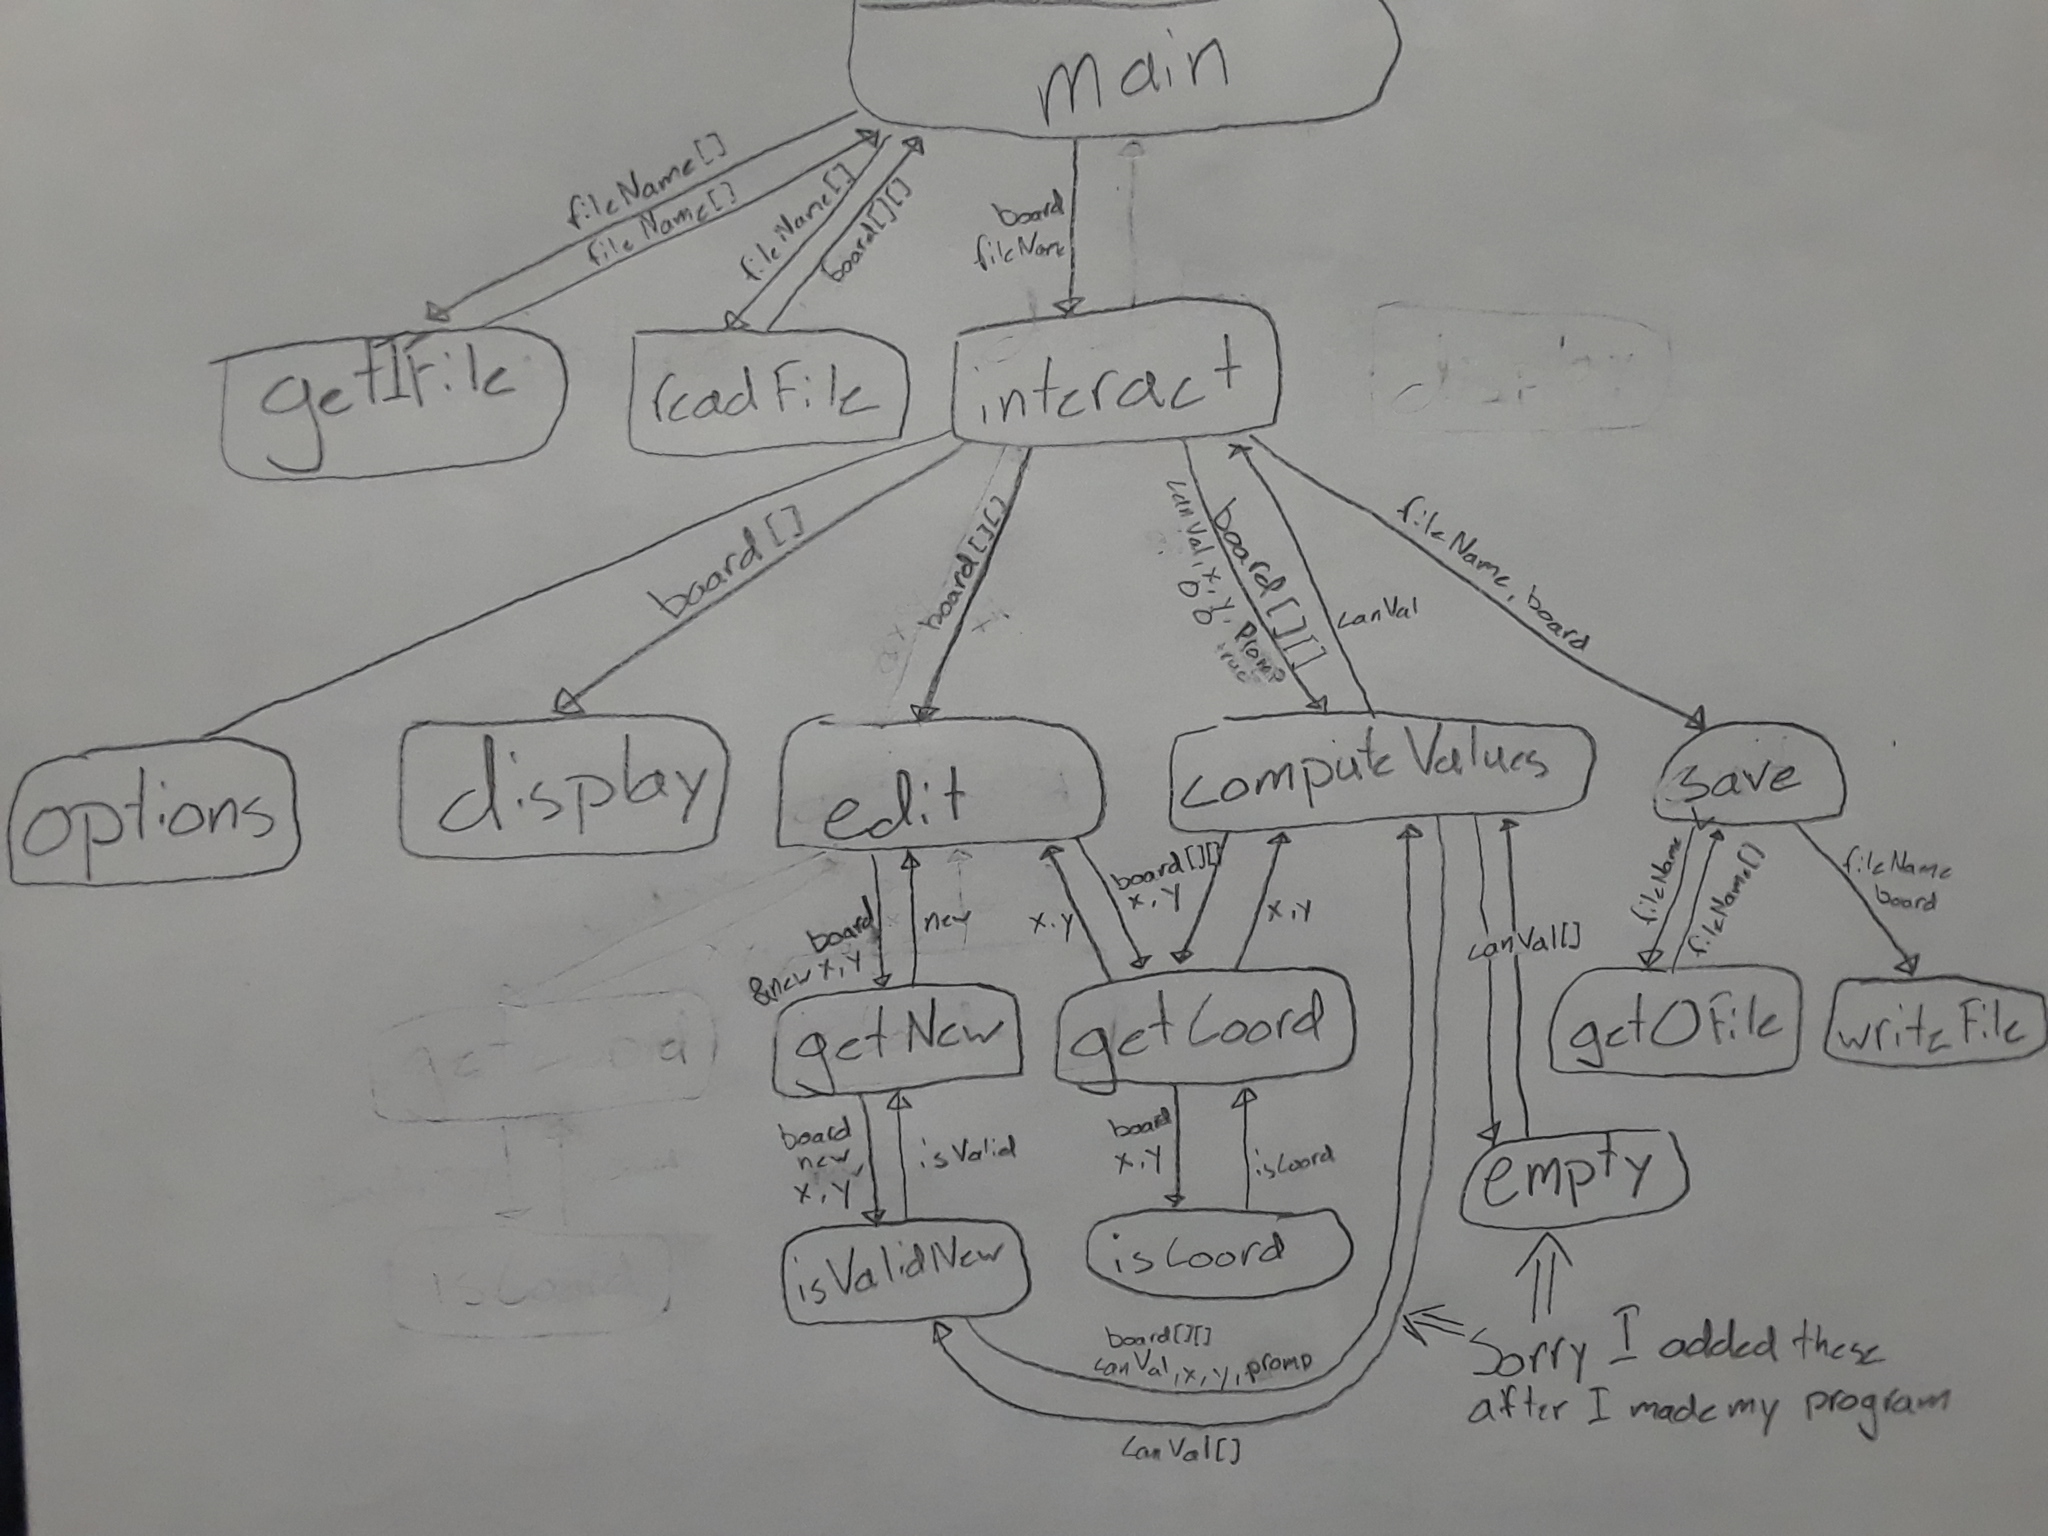 main
fileName[]
fileName[]
fileName[]
board[][]
board
fileName
getIFile
readFile
interact
board[]
board[][]
board[][]
canVal, x, y, promp
true
canVal
fileName, board
options
display
edit
computeValues
save
board
&new x, y
new
x, y
board[][]
x, y
x, y
canVal[]
fileName
fileName[]
fileName
board
getNew
getCoord
getOFile
writeFile
board
new
x, y
isValid
board
x, y
isCoord
empty
isValidNew
isCoord
board[][]
canVal, x, y, promp
canVal[]
Sorry I added these
after I made my program